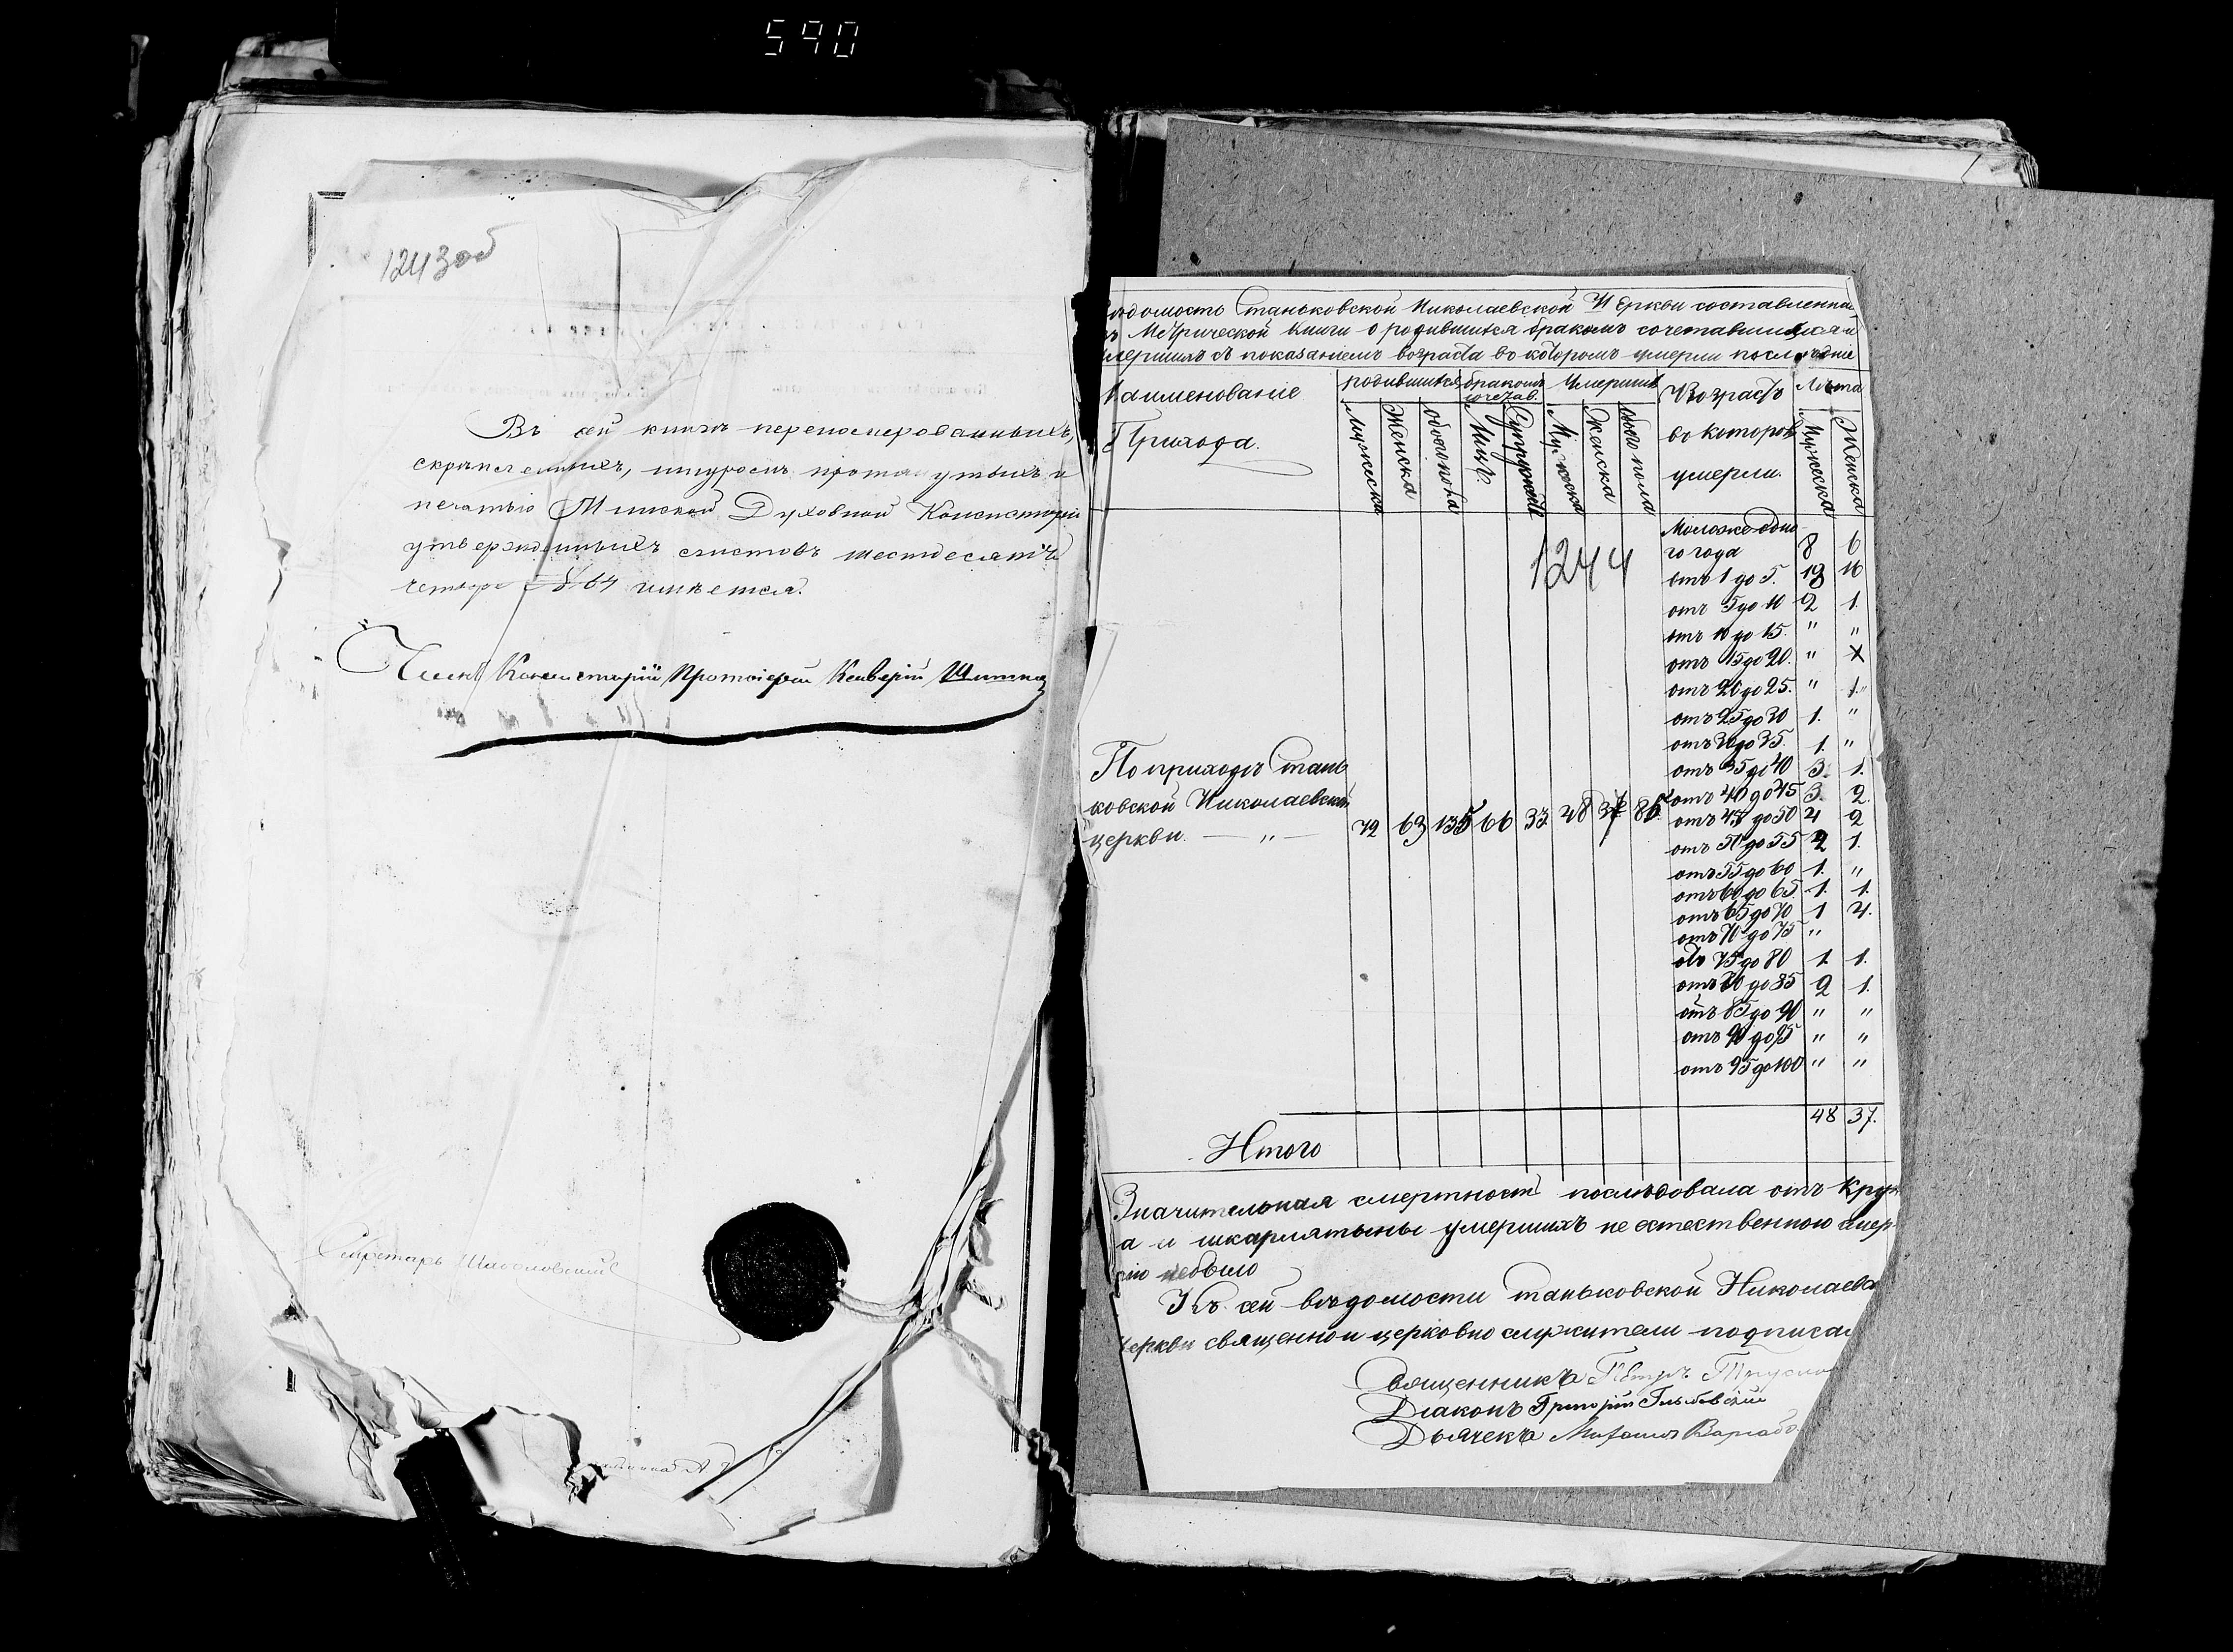 590
1243 об
Въ сей книгѣ перенумерованныхъ,
скрѣпленныхъ, шнуромъ протянутыхъ и
печатью Минской Духовной Консисторіи
утвержденныхъ листовъ шестьдесятъ
четыре 64 имѣется.
Членъ Консисторіи Протоіерей
Секретарь
Вѣдомость Станьковской Николаевской Церкви составленная
Метрической книги о родившихся бракомъ сочетавшихся и
умершихъ съ показаніемъ возраста во которомъ умерли послѣдніе
Наименованіе Прихода.
родившихся
бракомъ сочетав.
Умершихъ
Возрастъ во которомъ умерли.
Лѣта
Мужеска Женска Обоего пола Лицъ Супружествъ Мужеска Женска Обоего пола Мужеска Женска
1244
Моложе одно
го года 8 6
отъ 1 до 5. 18 16
отъ 5 до 10 2 1.
отъ 10 до 15. " "
отъ 15 до 20. " X
отъ 20 до 25. " 1."
отъ 25 до 30 1. "
отъ 30 до 35. 1. "
отъ 35 до 40 3. 1.
отъ 40 до 45 3. 2.
отъ 45 до 50 4 2
отъ 50 до 55 2 1.
отъ 55 до 60 1. "
отъ 60 до 65. 1. 1.
отъ 65 до 70 1 4.
отъ 70 до 75 "
отъ 75 до 80 1 1.
отъ 80 до 85 2 1.
отъ 85 до 90 " "
отъ 90 до 95 " "
отъ 95 до 100 " "
По приходѣ Стань
ковской Николаевской
церкви. — " — 72 63 135 66 33 48 37 85
48 37.
Итого
Значительная смертность послѣдовала отъ круп
а и шкарлятыны умершихъ не естественною смер-
тію небыло
Къ сей вѣдомости Станьковской Николаевс
Церкви священно и церковно служители подписа
Священникъ Петръ
Діаконъ Григорій
Дьячекъ Михаилъ